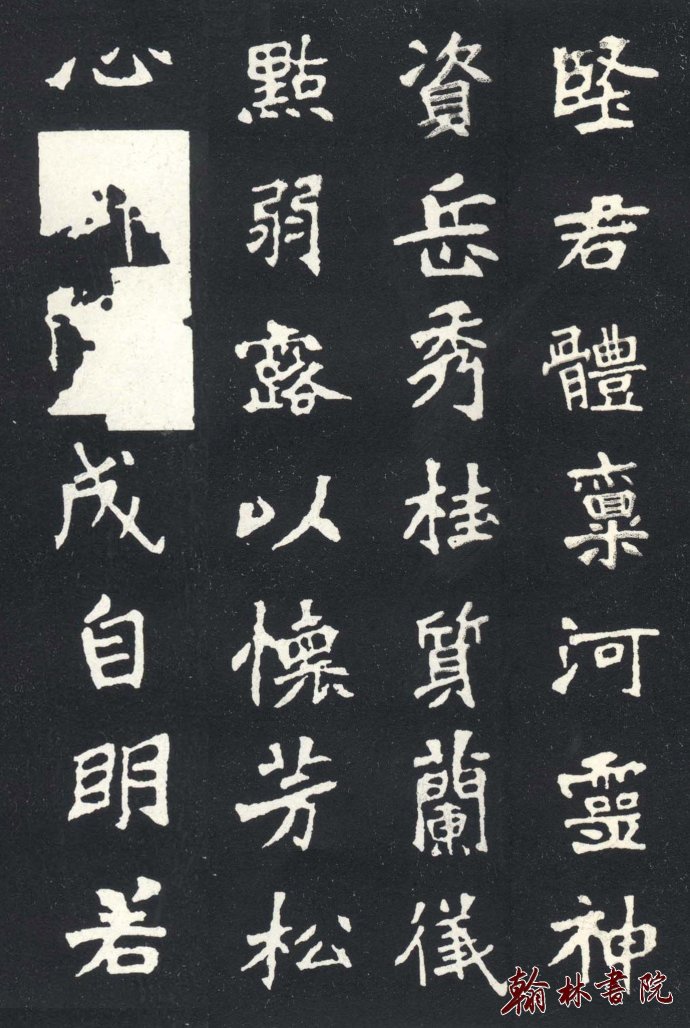 堅君體稟河靈神
資岳秀桂質蘭儀
點弱露以懷芳松
心成自明若
翰林書院